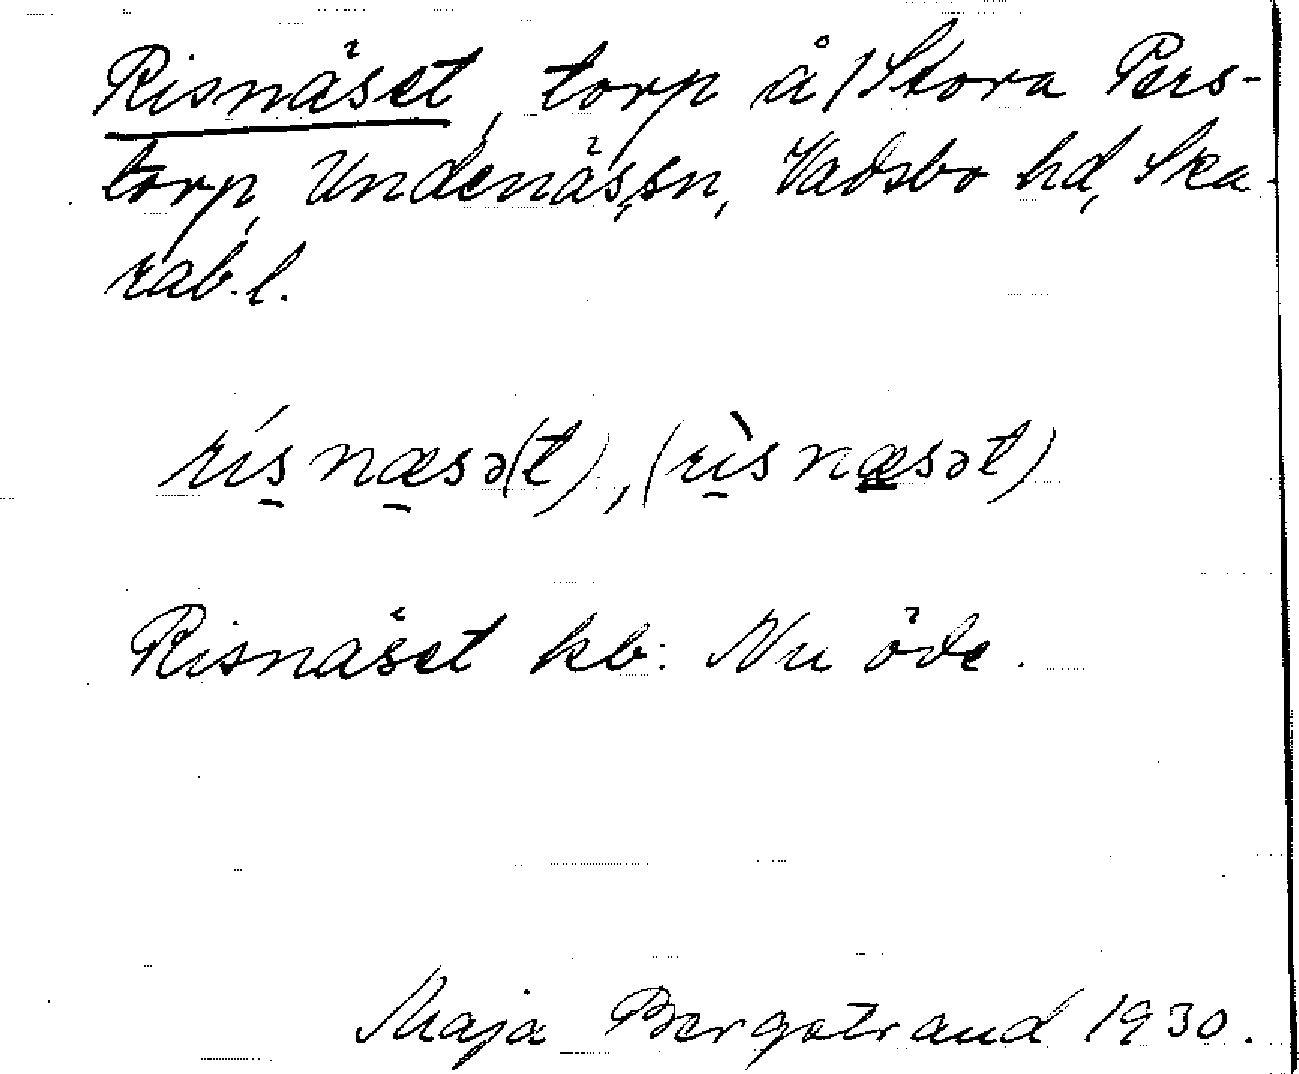 Risnäset, torp å/Stora Pers-
torp, Undenäs, sn, Vadsbo hd, Ska-
rab. l.
rís næsə(t), (rìs næsət)
Risnäset kb: Nu öde.
Maja Bergstrand 1930.